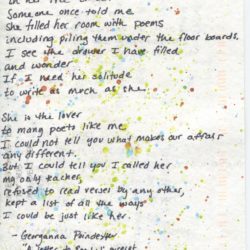 Someone once told me
She filled her room with poems
including piling them under the floor boards.
I see the drawer I have filled
and wonder
If I need her solitude
to write as much as she.
She is the lover
to many poets like me
I could not tell you what makes our affairs
any different.
But I could tell you I called her
my only teacher,
refused to read verses by any other,
kept a list of all the ways
I could be just like her.
- Georganna Poindexter